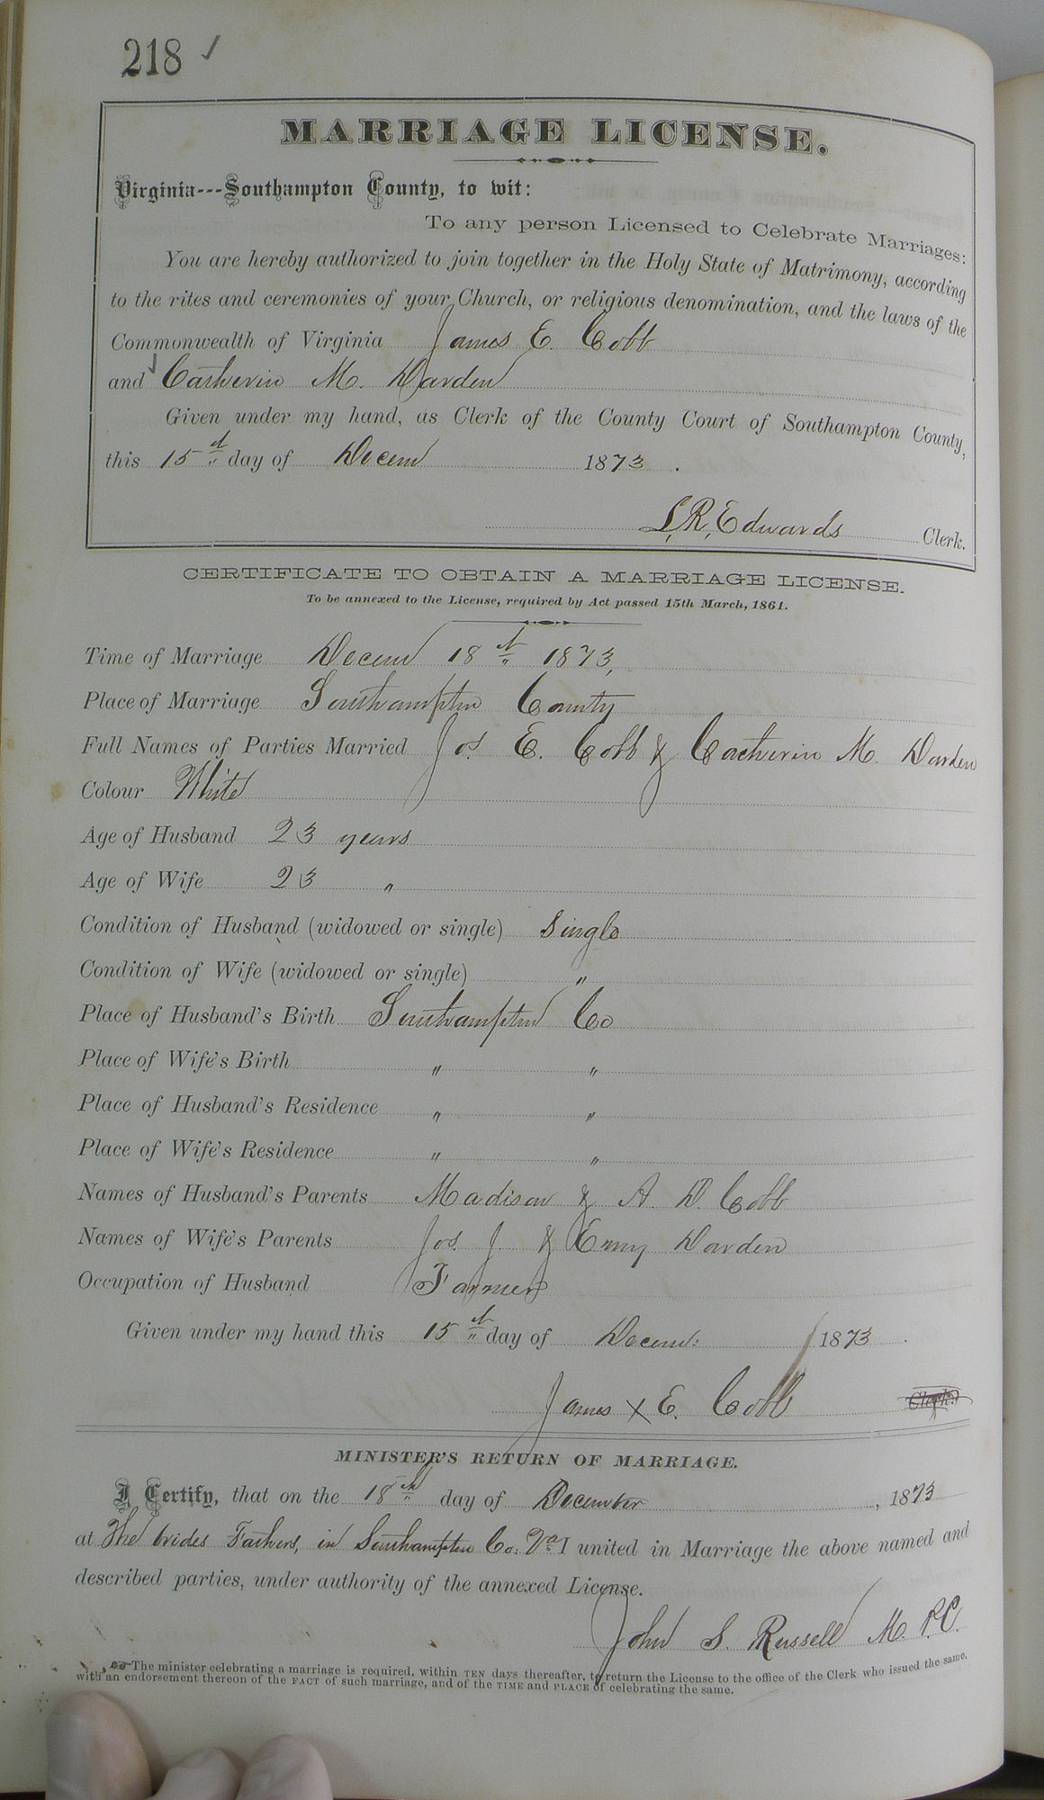 218 ✓
MARRIAGE LICENSE.
Virginia---Southampton County, to wit:
To any person Licensed to Celebrate Marriages:
You are hereby authorized to join together in the Holy State of Matrimony, according
to the rites and ceremonies of your Church, or religious denomination, and the laws of the
Commonwealth of Virginia James E. Cobb
and Catherin M. Darden
Given under my hand, as Clerk of the County Court of Southampton County,
this 15th day of Decem 1873.
L. R. Edwards Clerk.
CERTIFICATE TO OBTAIN A MARRIAGE LICENSE.
To be annexed to the License, required by Act passed 15th March, 1861.
Time of Marriage Decem 18th 1873,
Place of Marriage Southampton County
Full Names of Parties Married Jas. E. Cobb & Catherin M. Darden
Colour White
Age of Husband 23 years
Age of Wife 23 "
Condition of Husband (widowed or single) Single
Condition of Wife (widowed or single) "
Place of Husband's Birth Southampton Co
Place of Wife's Birth " "
Place of Husband's Residence " "
Place of Wife's Residence " "
Names of Husband's Parents Madison & A. D. Cobb
Names of Wife's Parents Jos. J. & Emy Darden
Occupation of Husband Farmer
Given under my hand this 15th day of Decem: 1873.
James X E. Cobb Clerk.
MINISTER'S RETURN OF MARRIAGE.
I Certify, that on the 18th day of December, 1873
at The brides Fathers, in Southampton Co. Va I united in Marriage the above named and
described parties, under authority of the annexed License.
John S. Russell M. P. C.
The minister celebrating a marriage is required, within TEN days thereafter, to return the License to the office of the Clerk who issued the same,
with an endorsement thereon of the FACT of such marriage, and of the TIME and PLACE of celebrating the same.